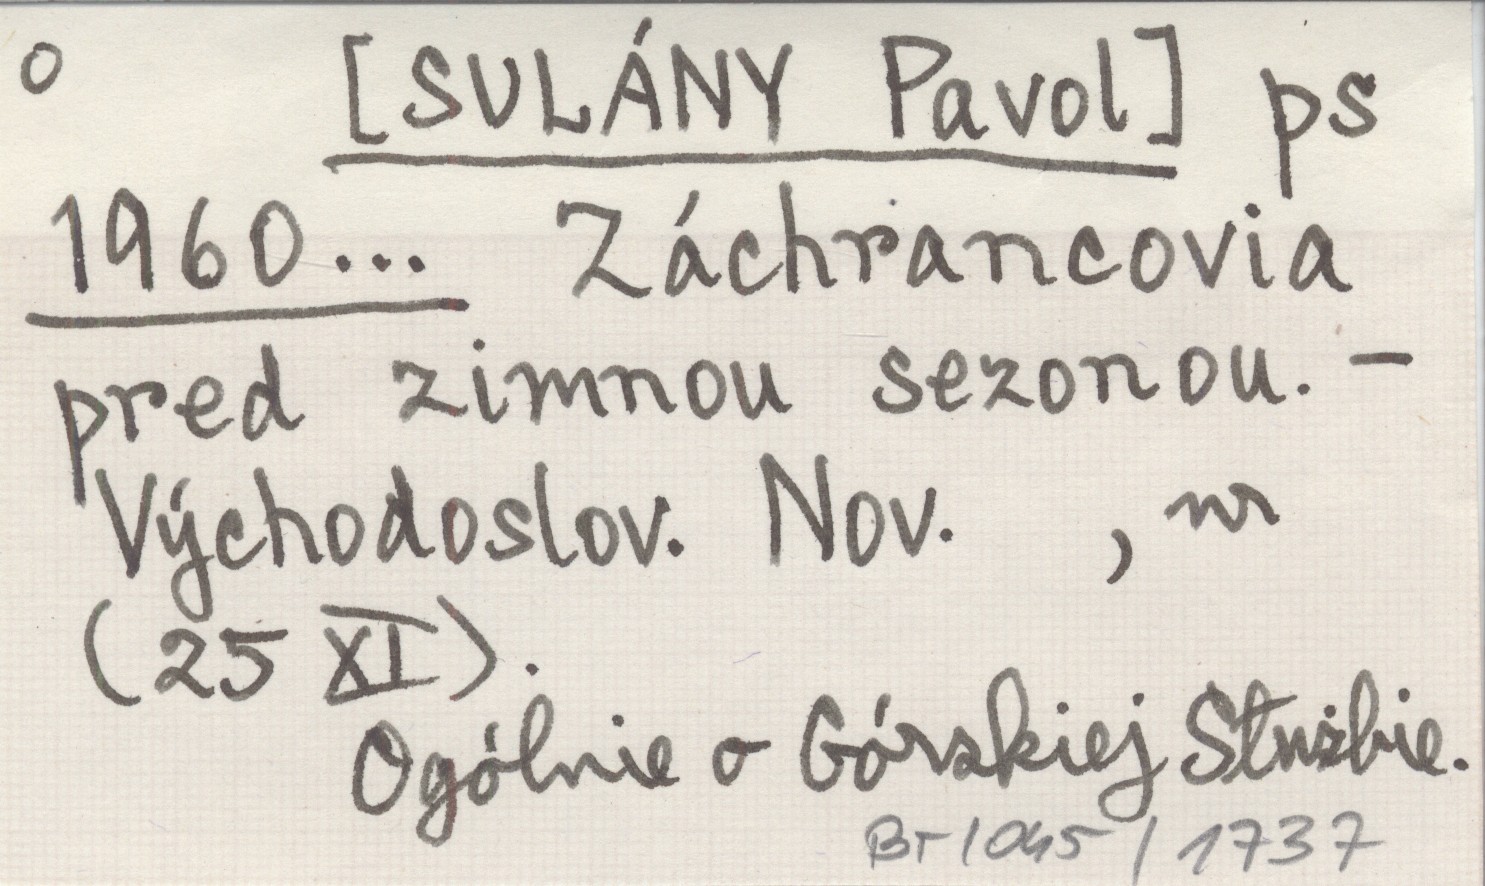 o [SULÁNY Pavol] ps
1960... Záchrancovia
pred zimnou sezonou. -
Východoslov. Nov. , nr
(25 XI).
Ogólnie o Górskiej Służbie.
1737